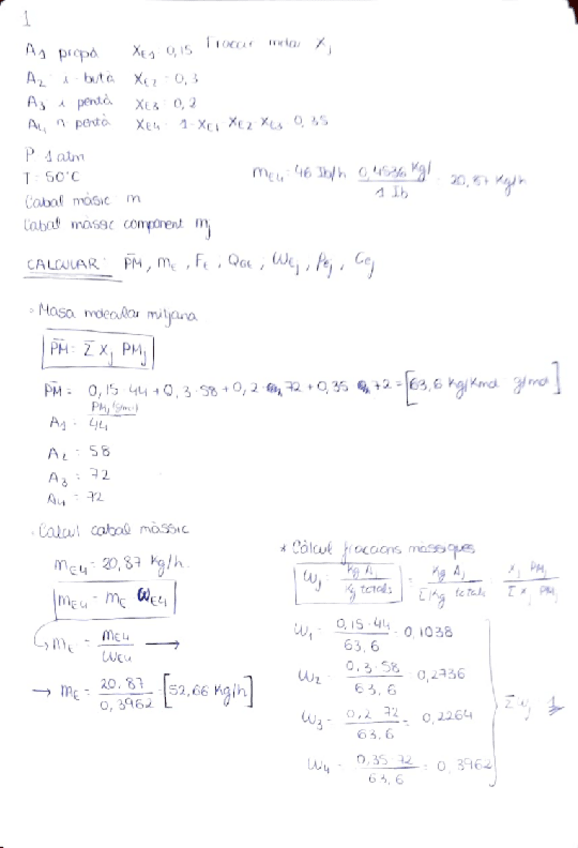 1
A₁ propà X_E1 = 0,15 Fracció molar Xⱼ
A₂ i-butà X_E2 = 0,3
A₃ i pentà X_E3 = 0,2
A₄ n pentà X_E4 = 1 - X_E1 - X_E2 - X_E3 0,35
P 1 atm
T = 50°C
m_E4 = 46 lb/h 0,4536 Kg/ / 1 lb = 20,87 Kg/h
Cabal màsic m
Cabal màssic component mⱼ
CALCULAR: P̅M̅, m_E, F_E, Q_GE, W_Ej, P_Ej, C_Ej
· Masa molecular mitjana
P̅M̅ = Σ Xⱼ PMⱼ
P̅M̅ = 0,15·44 + 0,3·58 + 0,2·72 + 0,35·72 = [63,6 Kg/Kmol g/mol]
PMⱼ (g/mol)
A₁ = 44
A₂ = 58
A₃ = 72
A₄ = 72
· Calcul cabal màssic
m_E4 = 20,87 Kg/h.
m_E4 = m_E W_E4
m_E = m_E4 / W_E4 →
→ m_E = 20,87 / 0,3962 [52,66 Kg/h]
* Càlcul fraccions màssiques
Wⱼ = Kg Aⱼ / Kg totals = Kg Aⱼ / Σ Kg totals = Xⱼ PMⱼ / Σ Xⱼ PMⱼ
W₁ = 0,15·44 / 63,6 = 0,1038
W₂ = 0,3·58 / 63,6 = 0,2736
W₃ = 0,2·72 / 63,6 = 0,2264
W₄ = 0,35·72 / 63,6 = 0,3962
Σ Wⱼ = 1